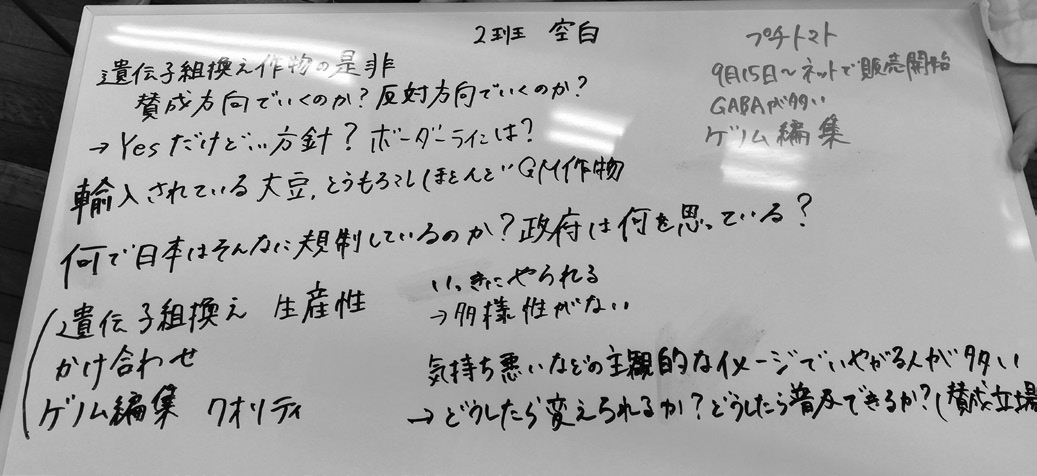 2班 空白
プチトマト
9月15日〜ネットで販売開始
GABAが多い
ゲノム編集
遺伝子組換え作物の是非
賛成方向でいくのか?反対方向でいくのか?
→Yesだけど…方針?ボーダーラインは?
輸入されている大豆,とうもろこしほとんどGM作物
何で日本はそんなに規制しているのか?政府は何を思っている?
遺伝子組換え 生産性
かけ合わせ
ゲノム編集 クオリティ
いっきにやられる
→多様性がない
気持ち悪いなどの主観的なイメージでいやがる人が多い
→どうしたら変えられるか?どうしたら普及できるか?(賛成立場